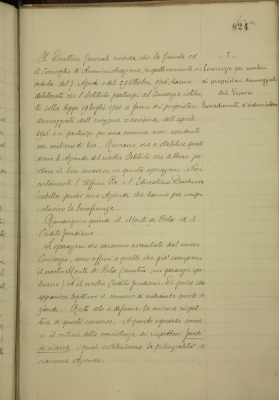 824
Il Direttore Generale ricorda che la Giunta ed
il Consiglio di Amministrazione, rispettivamente in
adunanza del 7 Agosto e del 2 Ottobre 1906 hanno
deliberato che l'Istituto partecipi al Consorzio istitui-
to colla legge 19 luglio 1906 a favore di proprietari
danneggiati dall'eruzione vesuviana dell'aprile
1906 e vi partecipi per una somma non eccedente
un milione di lire. Rimane ora a stabilire quali
siano le Aziende del nostro Istituto che debbono pre-
stare il loro concorso in questa operazione. Non
certamente l'Ufficio Pie e l'Educatorio Duchessa
Isabella, poiché sono Aziende che hanno per unico
la beneficenza.
Rimangono quindi il Monte di Pietà ed il
Credito Fondiario.
Le operazioni che saranno esercitate dal nuovo
Consorzio, sono affini a quelle che già compiono
il nostro Monte di Pietà (mutui con garanzia ipo-
tecaria) ed il nostro Credito Fondiario. Di guisa che
apparisce legittimo il concorso di entrambe queste A-
ziende. Resta solo a definire la misura rispet-
tiva di questo concorso. A questo riguardo sovvie-
ne il criterio della consistenza dei rispettivi fondi
di riserva, i quali costituiscono la potenzialità di
ciascuna Azienda.
- 5 -
Consorzio per mutui
ai proprietari danneggiati
dal Vesuvio
Provvedimenti d'ordine interno